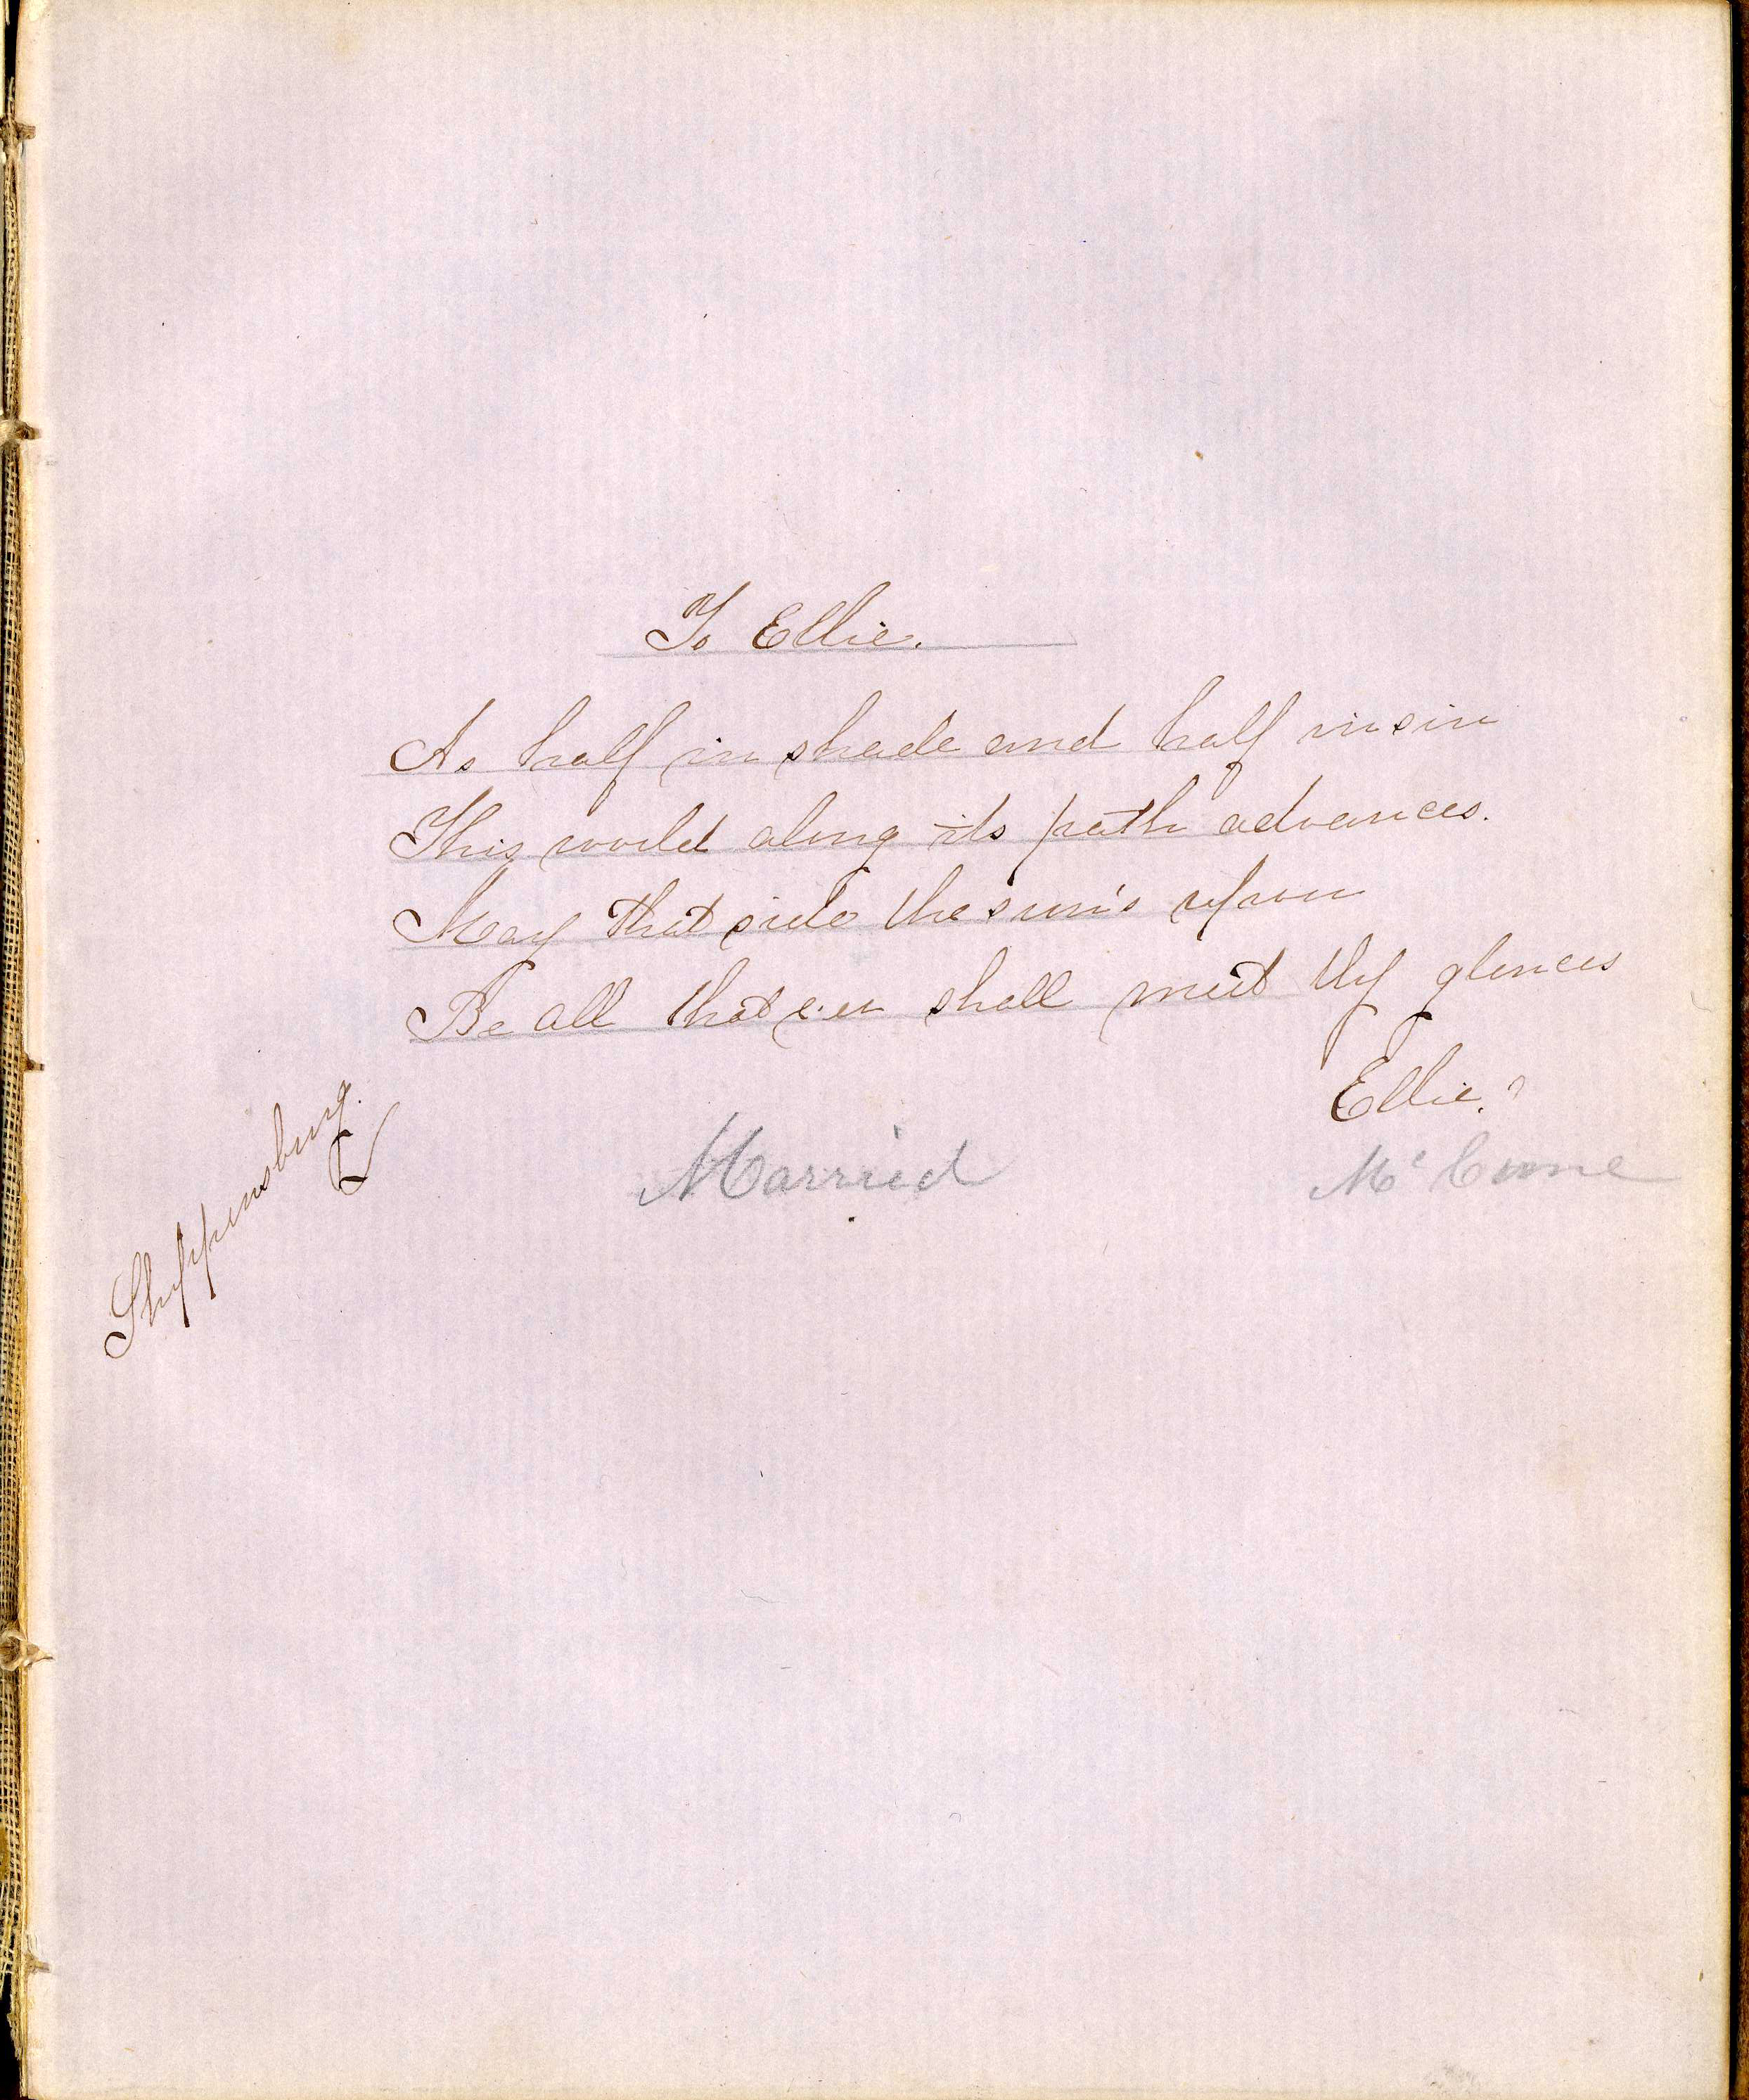 To Ellie.
As half in shade and half in sin
This world along its path advances.
May that side the sun's upon
Be all that e'er shall meet thy glances
Ellie.
Shippensburg.
Married
Mc Cune